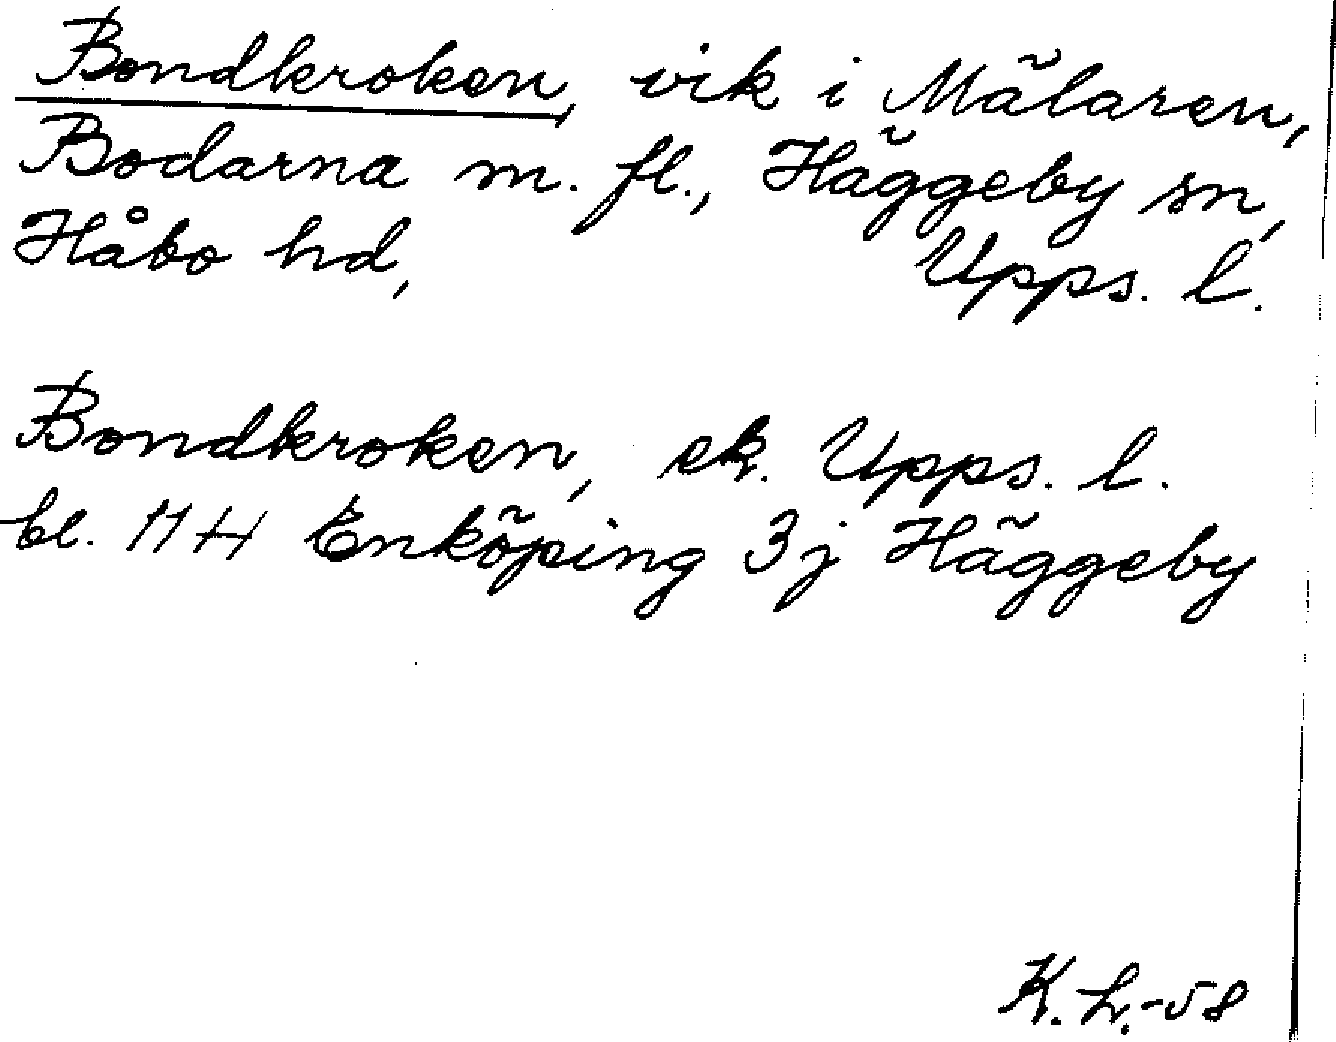 Bondkroken, vik i Mälaren,
Bodarna m. fl., Häggeby sn,
Håbo hd, Upps. l.
Bondkroken, ek. Upps. l.
bl. 11 H Enköping 3j Häggeby
K. L. -58